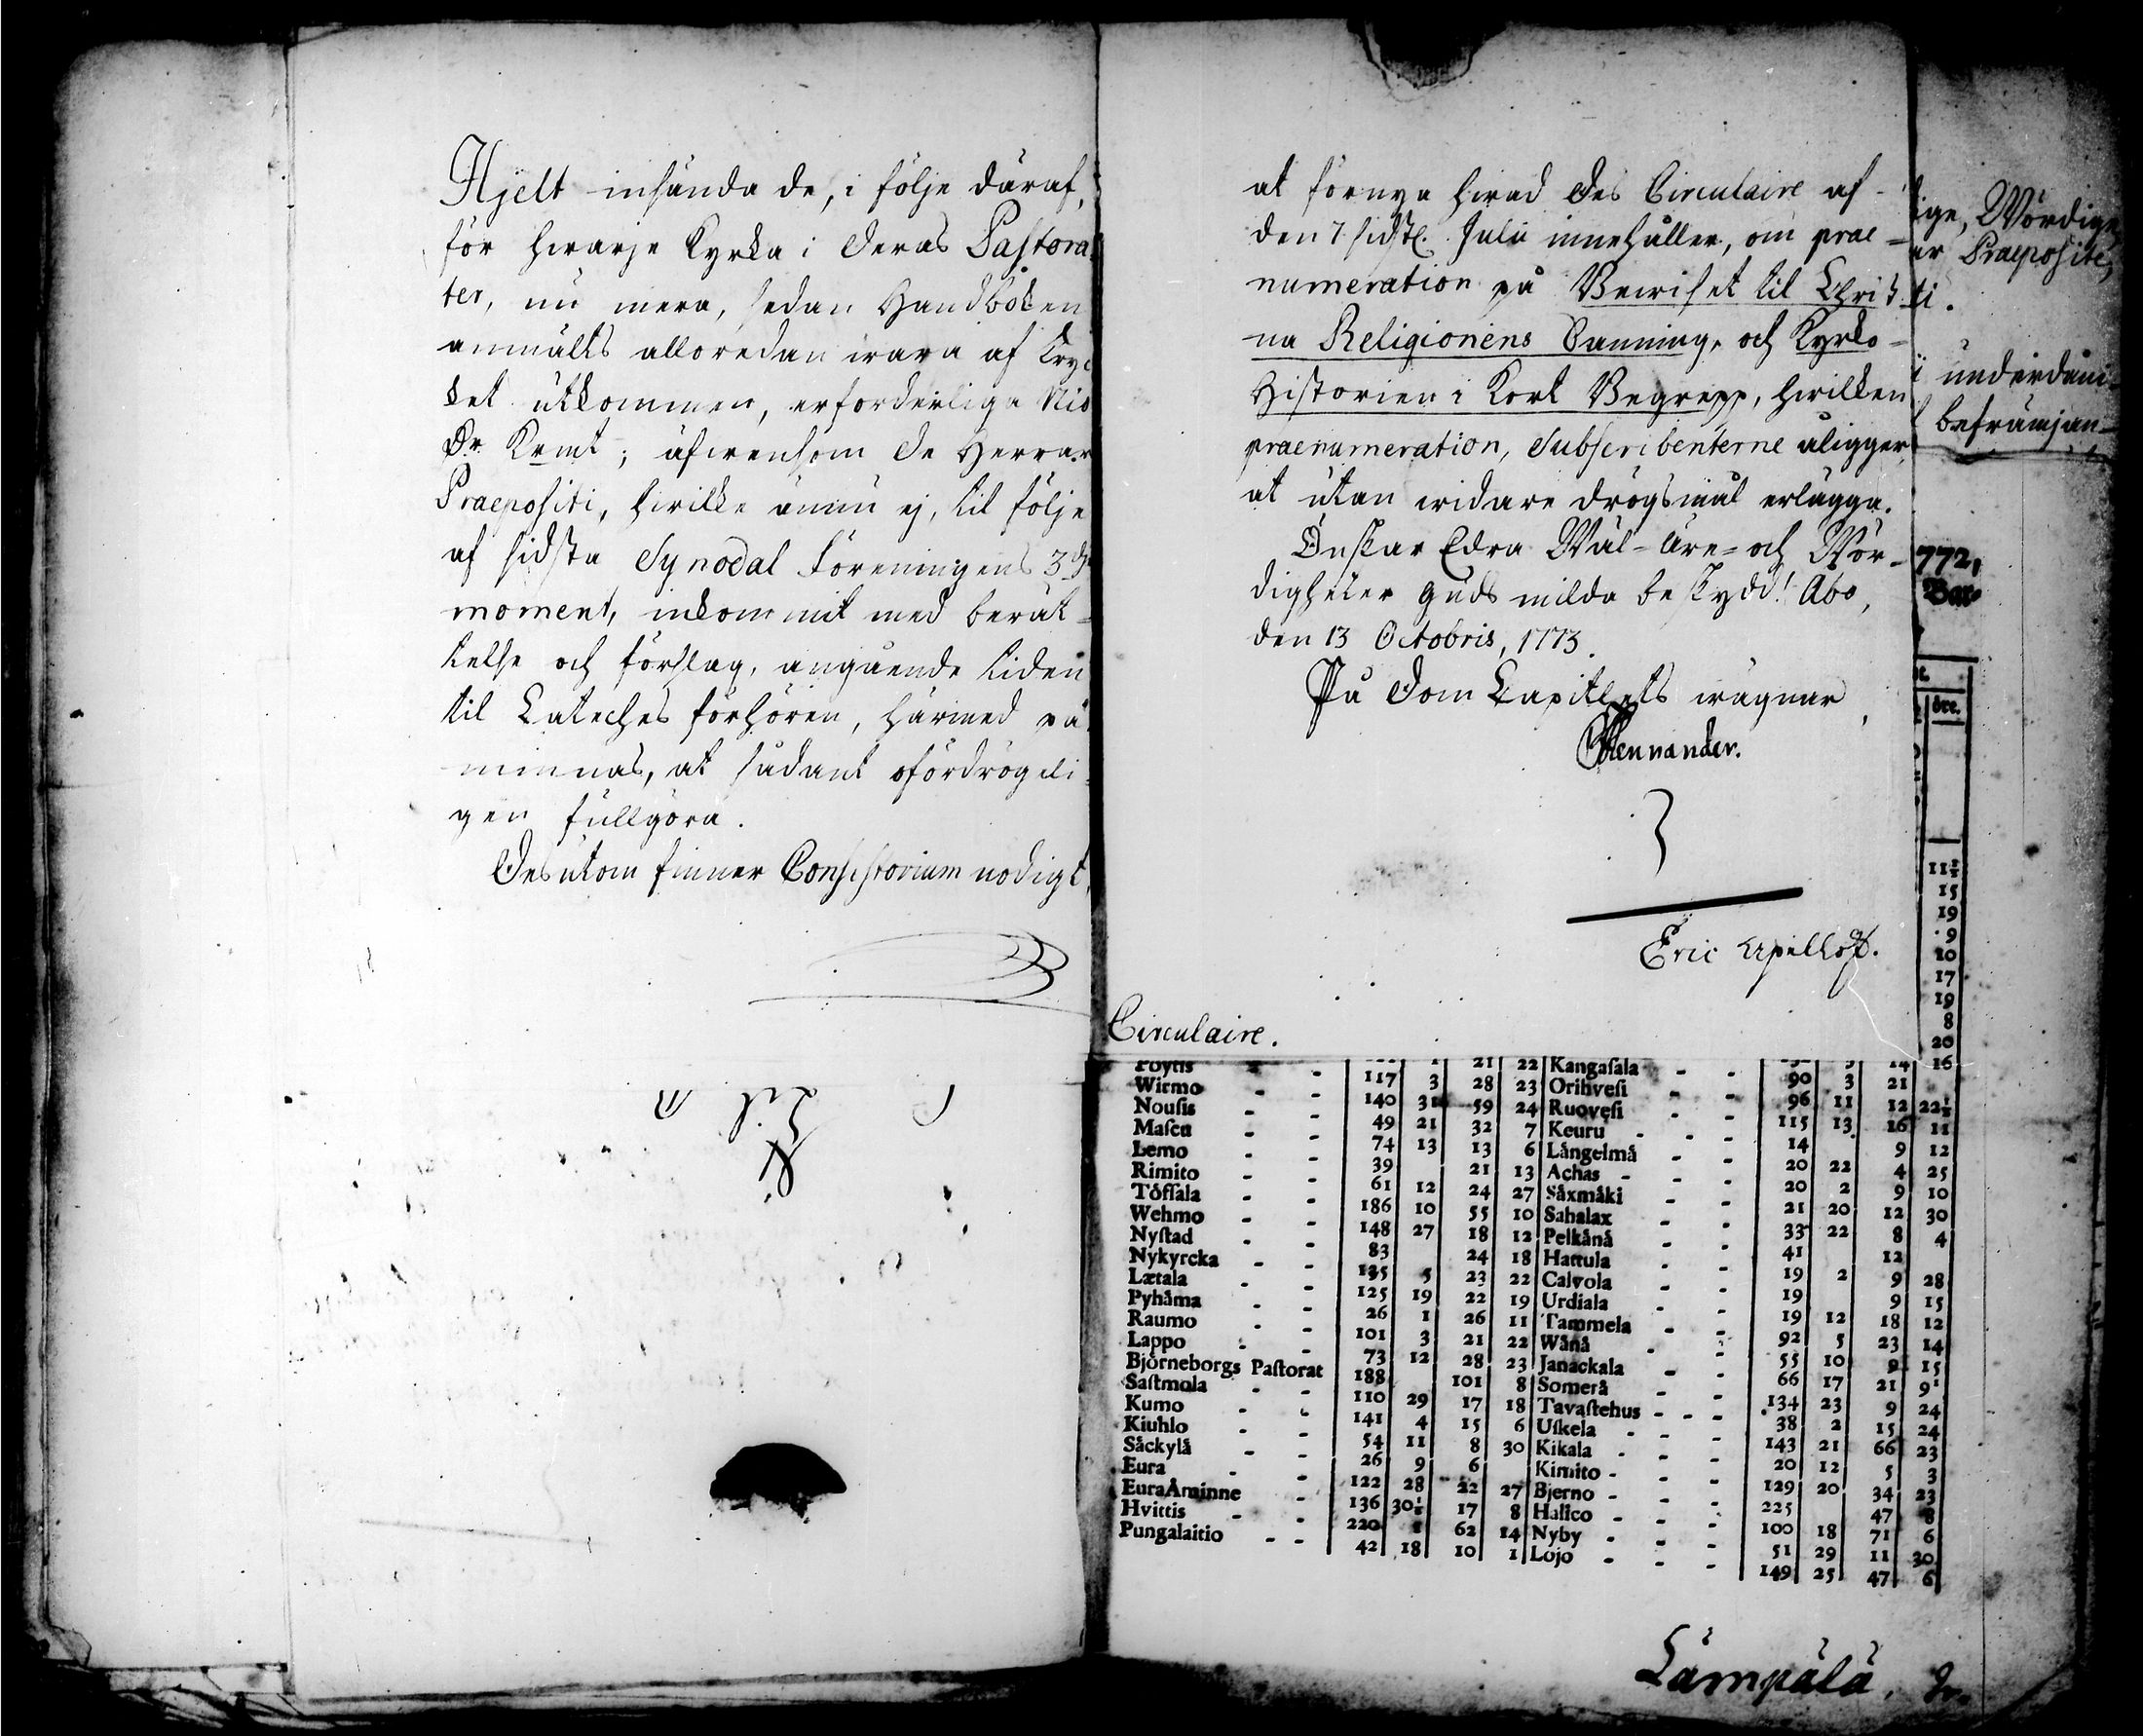 Hjelt insända de, i följe däraf,
för hwarje Kyrka i deras Pastora
ter, nu mera, sedan Handboken
anmälts alloredan wara af Tryc
ket utkommen, erforderliga Nio
Dr Kpmt; äfwensom de Herrar
Praepositi, hwilke ännu ej, til följe
af sidsta Synodal Föreningens 3dje
moment, inkommit med berät-
telse och förslag, angående tiden
til Cateches förhören, härmed på
minnas, at sådant ofördrögeli
gen fullgöra.
Desutom finner Consistorium nödigt,
at förnya hwad des Circulaire af
den 7 sidstl. Julii innehåller, om prae=
numeration på Bewiset til Christ
na Religionens Sanning, och Kyrko=
Historien i Kort Begrepp, hwilken
praenumeration, Subscribenterne åligger,
at utan widare drögsmål erlägga.
Önskar Edra Wäl=Äre= och Wör-
digheter Guds milda beskydd! Åbo,
den 13 Octobris, 1773.
På Dom Capitlets wägnar,
Mennander.
Eric Apelloff.
Circulaire.
ige, Wördige,
er Praeposite,
ti.
i underdåni-
befrämjan-
772,
öre.
11½
15
19
9
10
17
19
8
20
Pöytis - 1 21 22 Kangaſala - - 3 14 16
Wirmo - - 117 3 28 23 Orihveſi - - 90 3 21
Nouſis - - 140 31 59 24 Ruoveſi - - 96 11 12 22½
Maſcu - - 49 21 32 7 Keuru - - - 115 13 16 11
Lemo - - 74 13 13 6 Långelmå - - 14 9 12
Rimito - - 39 21 13 Achas - - - 20 22 4 25
Töſſala - - 61 12 24 27 Såxmåki - - 20 2 9 10
Wehmo - - 186 10 55 10 Sahalax - - 21 20 12 30
Nyſtad - - 148 27 18 12 Pelkånå - - 33 22 8 4
Nykyrcka - - 83 24 18 Hattula - - 41 12
Lætala - - 135 5 23 22 Calvola - - 19 2 9 28
Pyhåma - - 125 19 22 19 Urdiala - - 19 9 15
Raumo - - 26 1 26 11 Tammela - - 19 12 18 12
Lappo - - 101 3 21 22 Wånå - - 92 5 23 14
Björneborgs Paſtorat 73 12 28 23 Janackala - - 55 10 9 15
Saſtmola - - 188 101 8 Somerå - - 66 17 21 9
Kumo - - 110 29 17 18 Tavaſtehus - - - 134 23 9 24
Kiuhlo - - 141 4 15 6 Uſkela - - - 38 2 15 24
Såckylå - - 54 11 8 30 Kikala - - - 143 21 66 23
Eura - - 26 9 6 Kimito - - - 20 12 5 3
EuraÅminne - 122 28 22 27 Bjerno - - - 129 20 34 23
Hvittis - - 136 30½ 17 8 Halico - - - 225 47 8
Pungalaitio - - 220 62 14 Nyby - - - 100 18 71 6
42 18 10 1 Lojo - - - 51 29 11 30
149 25 47 6
Lämpälä.